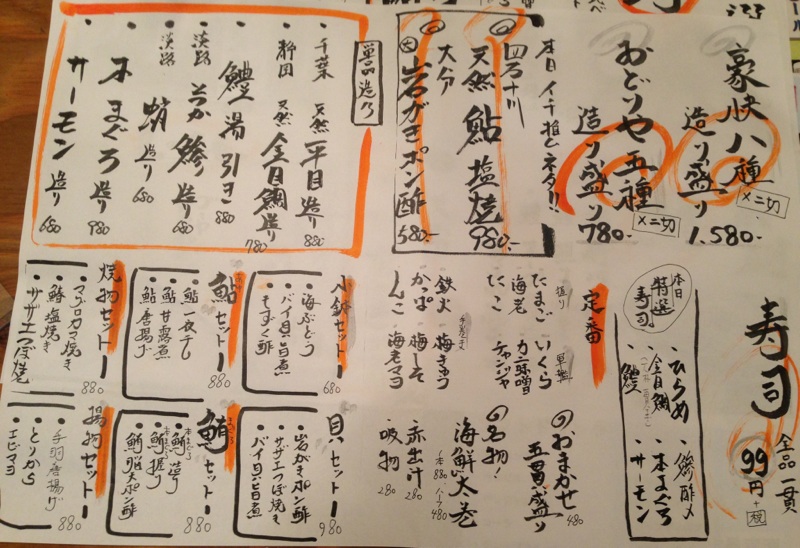 豪快八種
造り盛り
×二切
1.580-
おどりや五種
造り盛り
×二切
780-
本日イチ推しネタ!!
四万十川
天然 鮎 塩焼 980-
大分
大 岩がきポン酢 580-
単品造り
千葉 天然 平目造り 880
静岡 天然 金目鯛造り 780
鱧湯引き 880
淡路 とろか鯵造り 680
淡路 蛸造り 680
本まぐろ造り 980
サーモン造り 680
寿司
全品一貫
99円+税
本日
特選
寿司
ひらめ
金目鯛
鱧
鯵酢〆
本まぐろ
サーモン
定番
握り
たまご
海老
たこ
軍艦
いくら
カニ味噌
チャンジャ
手巻き
鉄火
かっぱ
しんこ
梅きゅう
梅しそ
海老マヨ
のおまかせ
五貫盛り 480
の名物!
海鮮太巻
一本 880 ハーフ 480
赤出汁 280
吸物 280
小鉢セット
海ぶどう
バイ貝旨煮
もずく酢
680
鮎セット
鮎一夜干し
鮎甘露煮
鮎唐揚げ
880
焼物セット
マグロカマ焼き
鰆塩焼き
サザエつぼ焼き
880
貝セット
岩がきポン酢
サザエつぼ焼き
バイ貝旨煮
980
鮪セット
鮪造り
鮪握り
880
揚物セット
手羽唐揚げ
とりから
エビマヨ
880